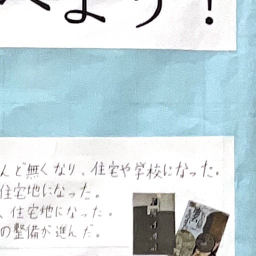 べよう！
んど無くなり、住宅や学校になった。
住宅地になった。
、住宅地になった。
の整備が進んだ。